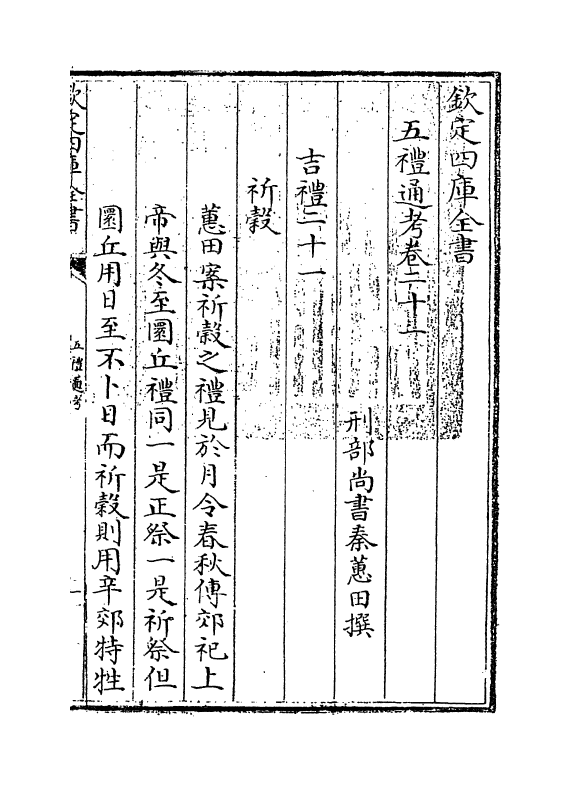 欽定四庫全書
五禮通考卷二十一
刑部尚書秦蕙田撰
吉禮二十一
祈穀
蕙田案祈穀之禮見於月令春秋傳郊祀上
帝與冬至圜丘禮同一是正祭一是祈祭但
圜丘用日至不卜日而祈穀則用辛郊特牲
欽定四庫全書
五禮通考